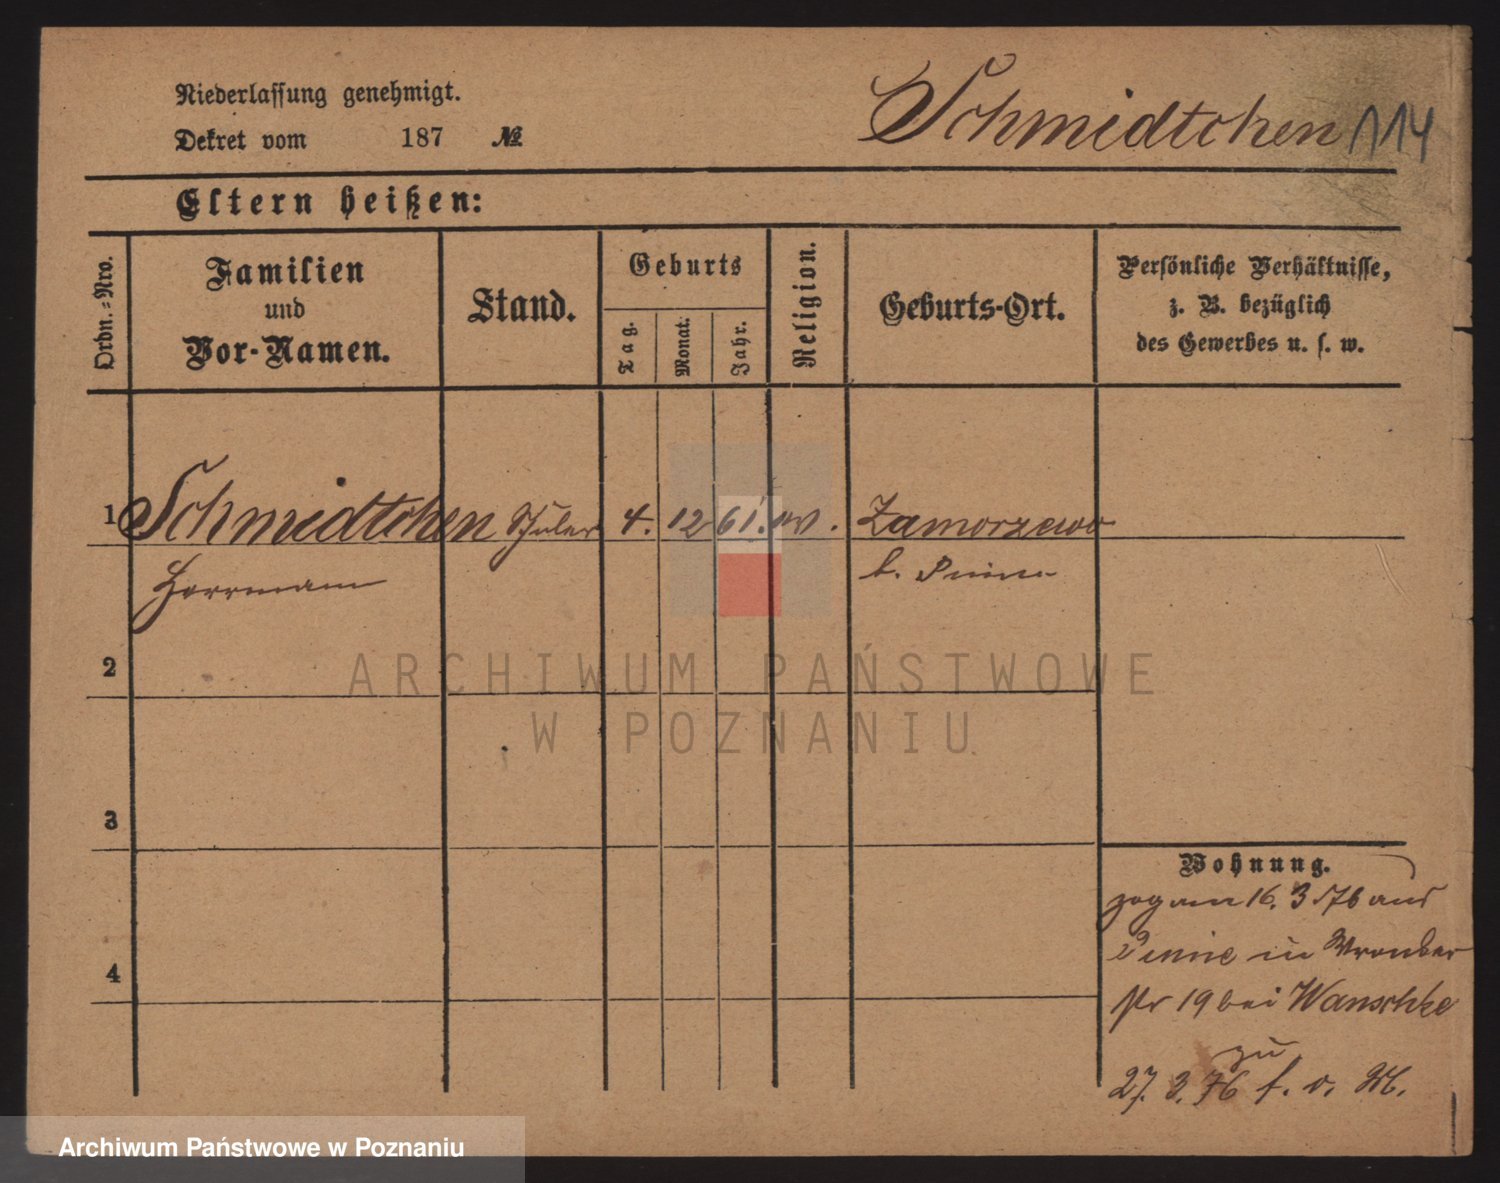 Niederlassung genehmigt.
Dekret vom 187 №
Schmidtchen 114
Eltern heißen:
Ordn.-Nro.
Familien
und
Vor-Namen.
Stand.
Geburts
Tag.
Monat.
Jahr.
Religion.
Geburts-Ort.
Persönliche Verhältnisse,
z. B. bezüglich
des Gewerbes u. s. w.
1 Schmidtchen Schüler 4. 12 61. ev. Zamorzewo
Herrmann b. Pinne
2
3
4
Wohnung.
zog am 16. 3 76 aus
Pinne in Wronker
str 19 bei Wanschke
zu
27. 3. 76 f. v. M.
ARCHIWUM PAŃSTWOWE
W POZNANIU
Archiwum Państwowe w Poznaniu